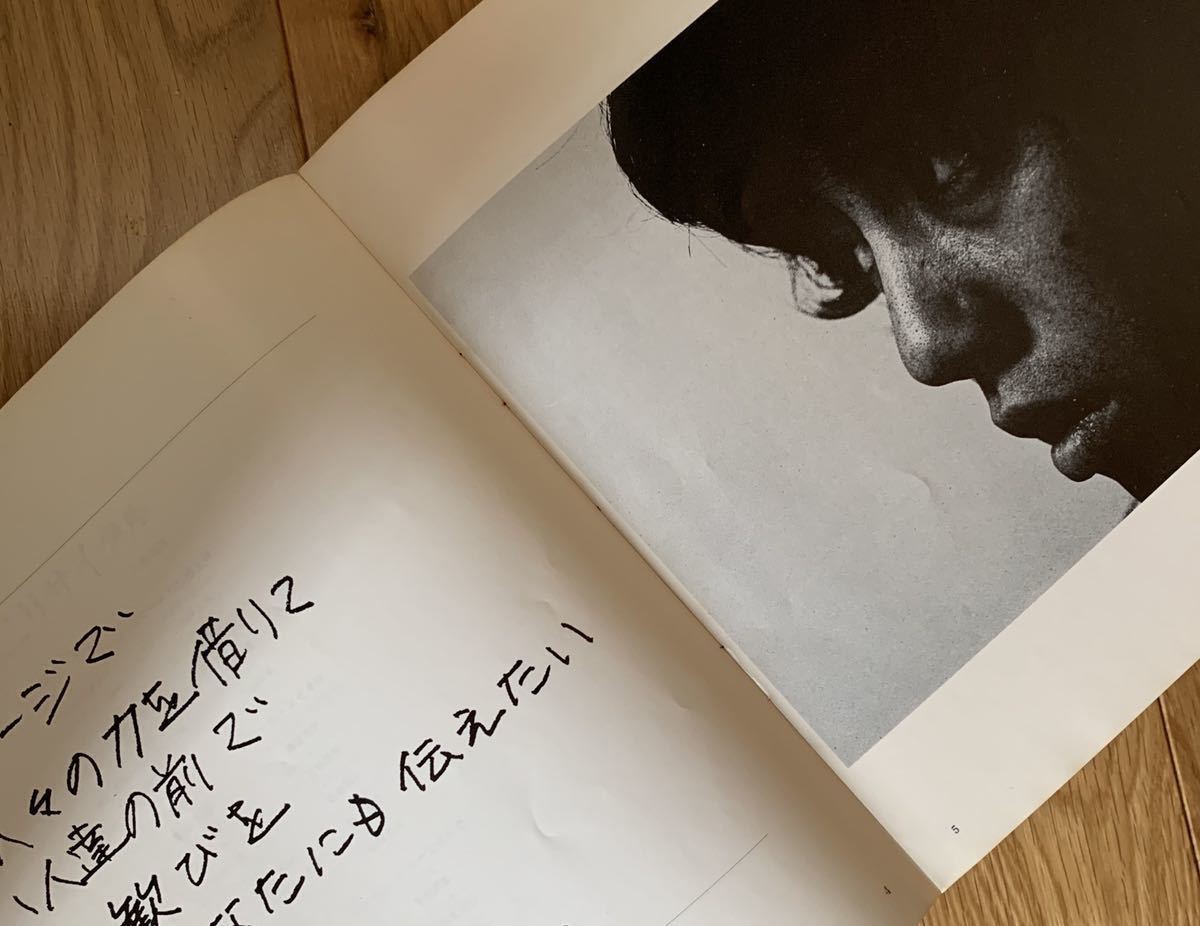 ージで
人々の力を借りて
い人達の前で
歓びを
なたにも伝えたい
4
5